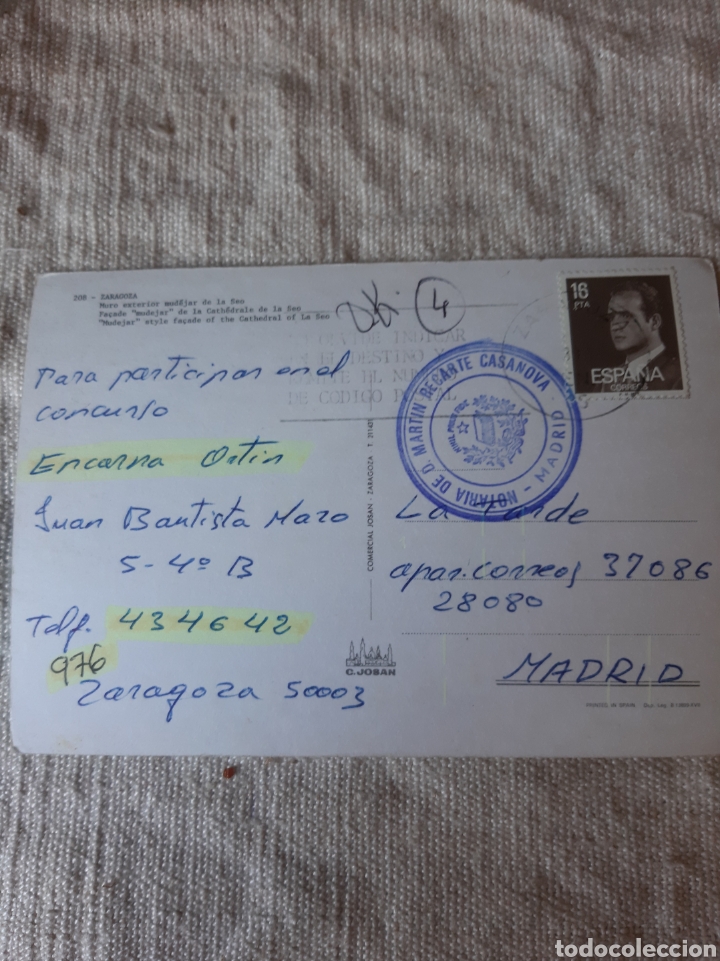 208 - ZARAGOZA
Muro exterior mudéjar de la Seo
Façade "mudejar" de la Cathédrale de la Seo
"Mudejar" style façade of the Cathedral of La Seo
4
OLVIDE INDICAR
EL DESTINO Y
EL NUM
DE CODIGO POSTAL
16
PTA
ESPAÑA
CORREOS
NOTARIA DE D. MARTIN RECARTE CASANOVA - MADRID
NIHIL PRIUS FIDE
Para participar en el
concurso
Encarna Ortin
Juan Bautista Mazo
5-4º B
Telf. 434642
976
Zaragoza 50003
COMERCIAL JOSAN - ZARAGOZA
C. JOSAN
La Tarde
apar. correos 37086
28080
MADRID
todocoleccion